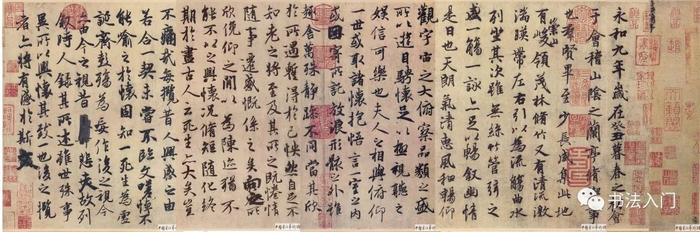 永和九年歲在癸丑暮春之初會
于會稽山陰之蘭亭脩稧事
也群賢畢至少長咸集此地
有崇山峻領茂林脩竹又有清流激
湍暎帶左右引以為流觴曲水
列坐其次雖無絲竹管弦之
盛一觴一詠亦足以暢叙幽情
是日也天朗氣清惠風和暢仰
觀宇宙之大俯察品類之盛
所以遊目騁懷足以極視聽之
娛信可樂也夫人之相與俯仰
一世或取諸懷抱悟言一室之內
或因寄所託放浪形骸之外雖
趣舍萬殊靜躁不同當其欣
於所遇暫得於己怏然自足不
知老之將至及其所之既惓情
隨事遷感慨係之矣向之所
欣俛仰之閒以為陳迹猶不
能不以之興懷況脩短隨化終
期於盡古人云死生亦大矣豈
不痛哉每攬昔人興感之由
若合一契未嘗不臨文嗟悼不
能喻之於懷固知一死生為虛
誕齊彭殤為妄作後之視今
亦由今之視昔悲夫故列
叙時人錄其所述雖世殊事
異所以興懷其致一也後之攬
者亦將有感於斯文
书法入门